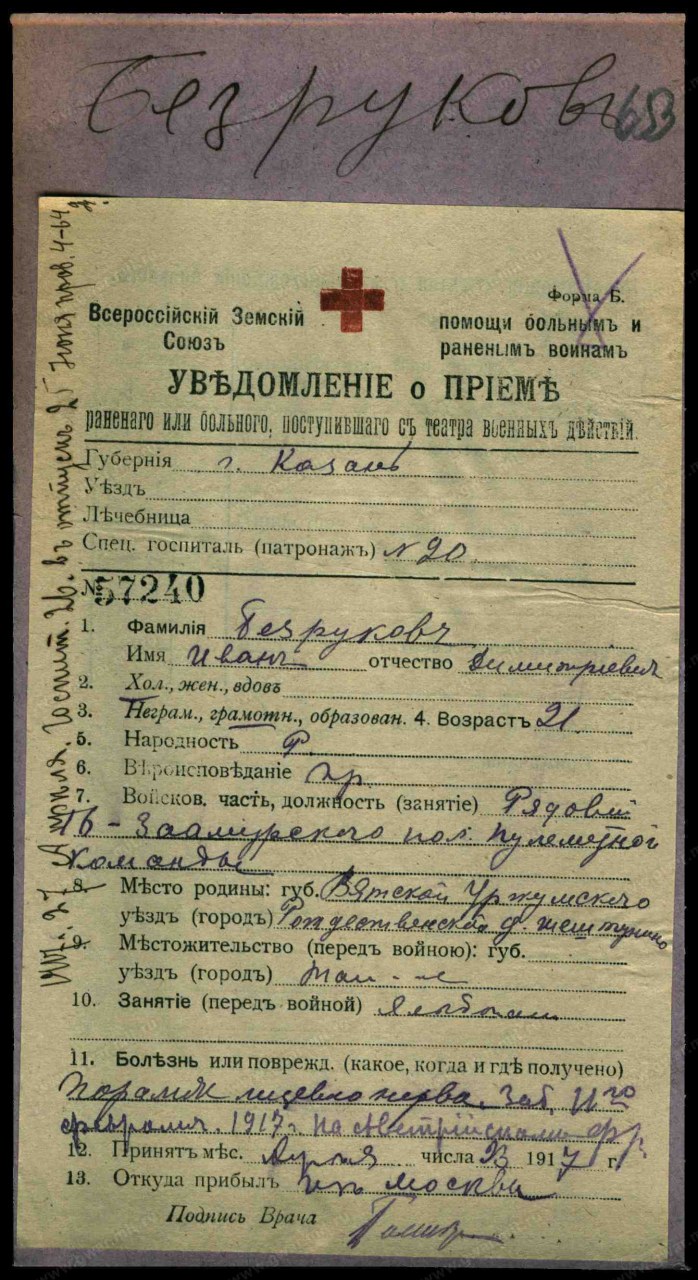 Безруковъ 653
Форма Б.
Всероссійскій Земскій Союзъ
помощи больнымъ и раненымъ воинамъ
УВѢДОМЛЕНІЕ о ПРІЕМѢ
раненаго или больного, поступившаго съ театра военныхъ дѣйствій.
Губернія г. Казань
Уѣздъ
Лѣчебница
Спец. госпиталь (патронажъ) №20
№ 57240
1. Фамилія Безруковъ
Имя Иванъ отчество Димитріевич
2. Хол., жен., вдовъ
3. Неграм., грамотн., образован. 4. Возрастъ 21
5. Народность Р.
6. Вѣроисповѣданіе пр.
7. Войсков. часть, должность (занятіе) Рядовой
16 - Заамурского пол. пулеметной
команды
8. Мѣсто родины: губ. Вятской Уржумского
уѣздъ (городъ) Рождественской д.
9. Мѣстожительство (передъ войною): губ.
уѣздъ (городъ)
10. Занятіе (передъ войной)
11. Болѣзнь или поврежд. (какое, когда и гдѣ получено)
лицевого нерва. Заб.
февраля. 1917 г. на Австрійскомъ фр.
12. Принятъ мѣс. числа 23 1917 г.
13. Откуда прибылъ изъ Москвы
Подпись Врача
Госпит. 20. въ отпускъ